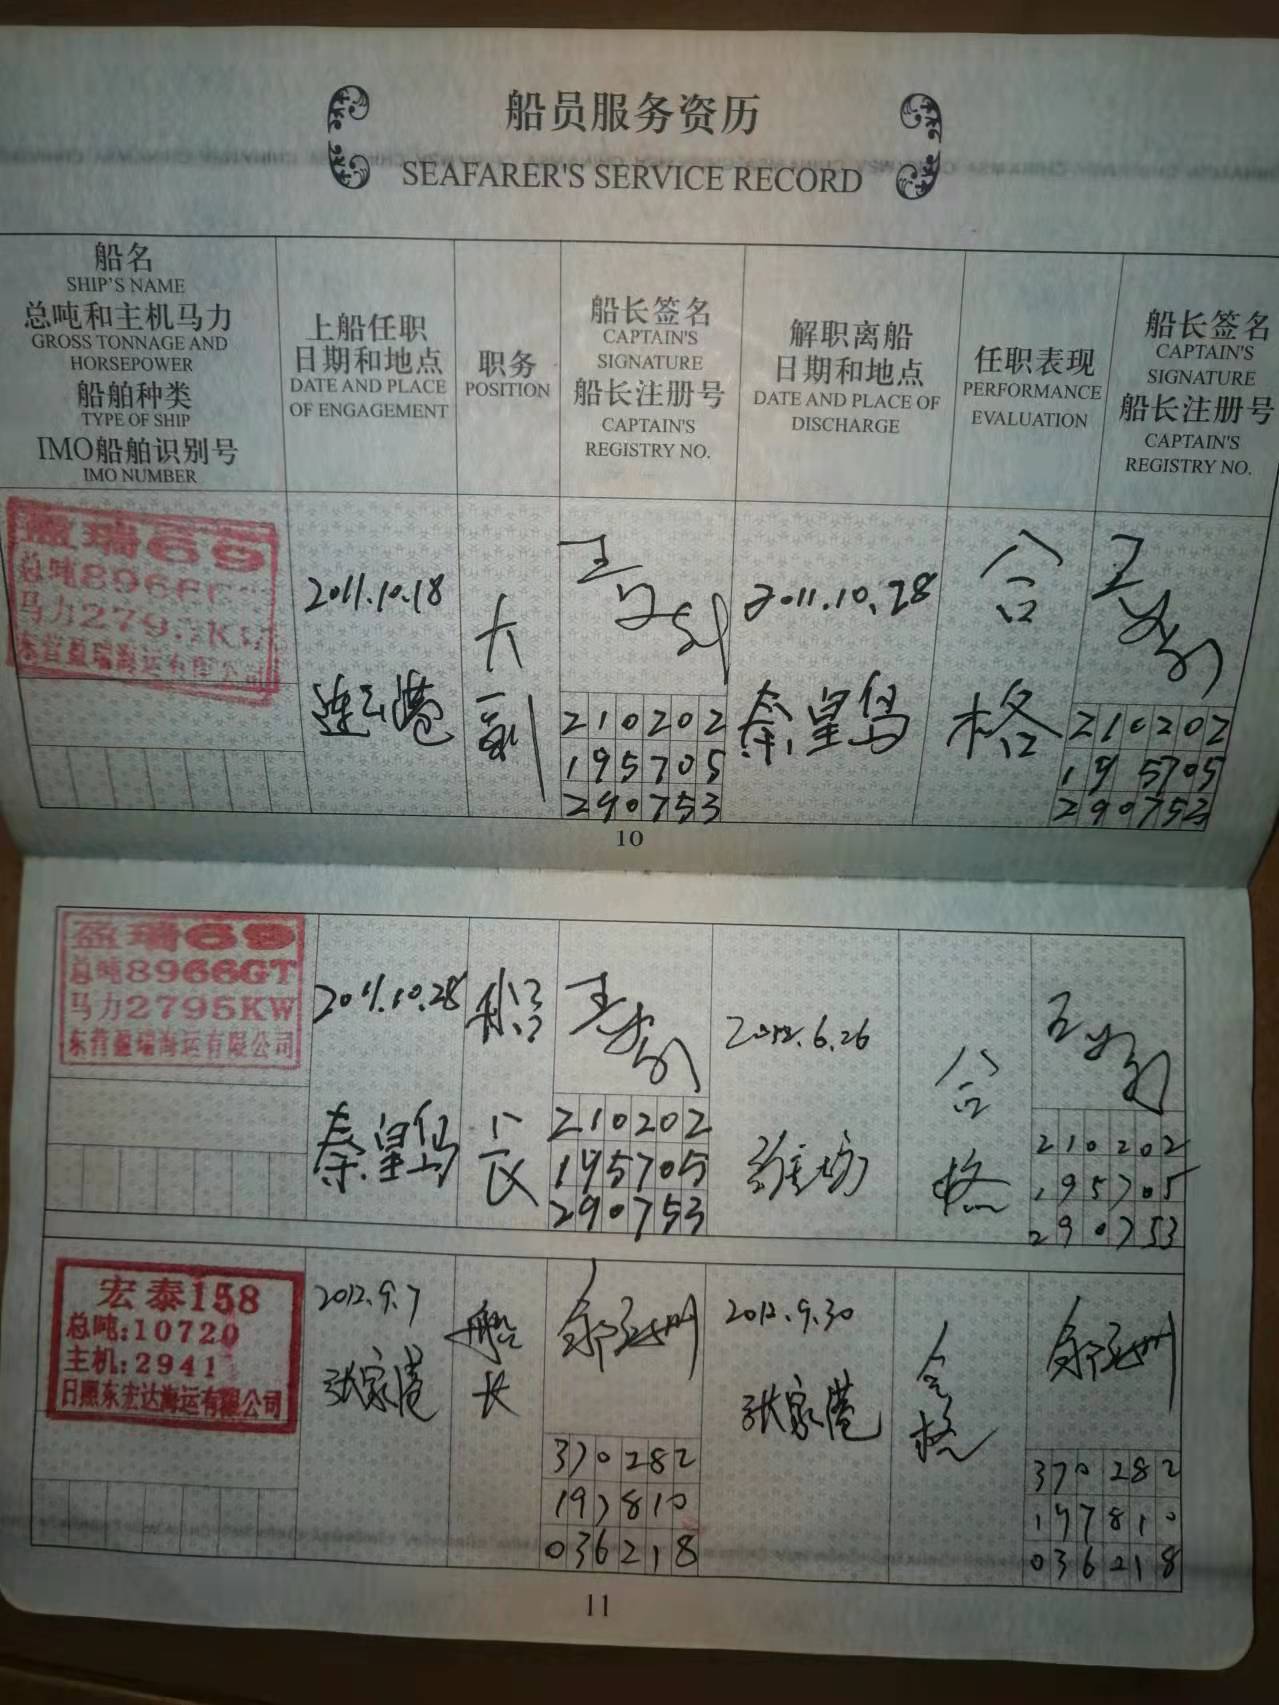 船员服务资历
SEAFARER'S SERVICE RECORD
船名
SHIP'S NAME
总吨和主机马力
GROSS TONNAGE AND
HORSEPOWER
船舶种类
TYPE OF SHIP
IMO船舶识别号
IMO NUMBER
上船任职
日期和地点
DATE AND PLACE
OF ENGAGEMENT
职务
POSITION
船长签名
CAPTAIN'S
SIGNATURE
船长注册号
CAPTAIN'S
REGISTRY NO.
解职离船
日期和地点
DATE AND PLACE OF
DISCHARGE
任职表现
PERFORMANCE
EVALUATION
船长签名
CAPTAIN'S
SIGNATURE
船长注册号
CAPTAIN'S
REGISTRY NO.
盈瑞69
总吨8966G
马力279
东营盈瑞海运有限公司
2011.10.18
连云港
大
副
210202
195705
290753
2011.10.28
秦皇岛
合
格
210202
195705
290753
10
盈瑞69
总吨8966GT
马力2795KW
东营盈瑞海运有限公司
2011.10.28
秦皇岛
船
长
210202
195705
290753
2012.6.26
潍坊
合
格
210202
195705
290753
宏泰158
总吨:10720
主机:2941
日照东宏达海运有限公司
2012.9.7
张家港
船
长
370282
197810
036218
2012.9.30
张家港
合
格
370282
197810
036218
11